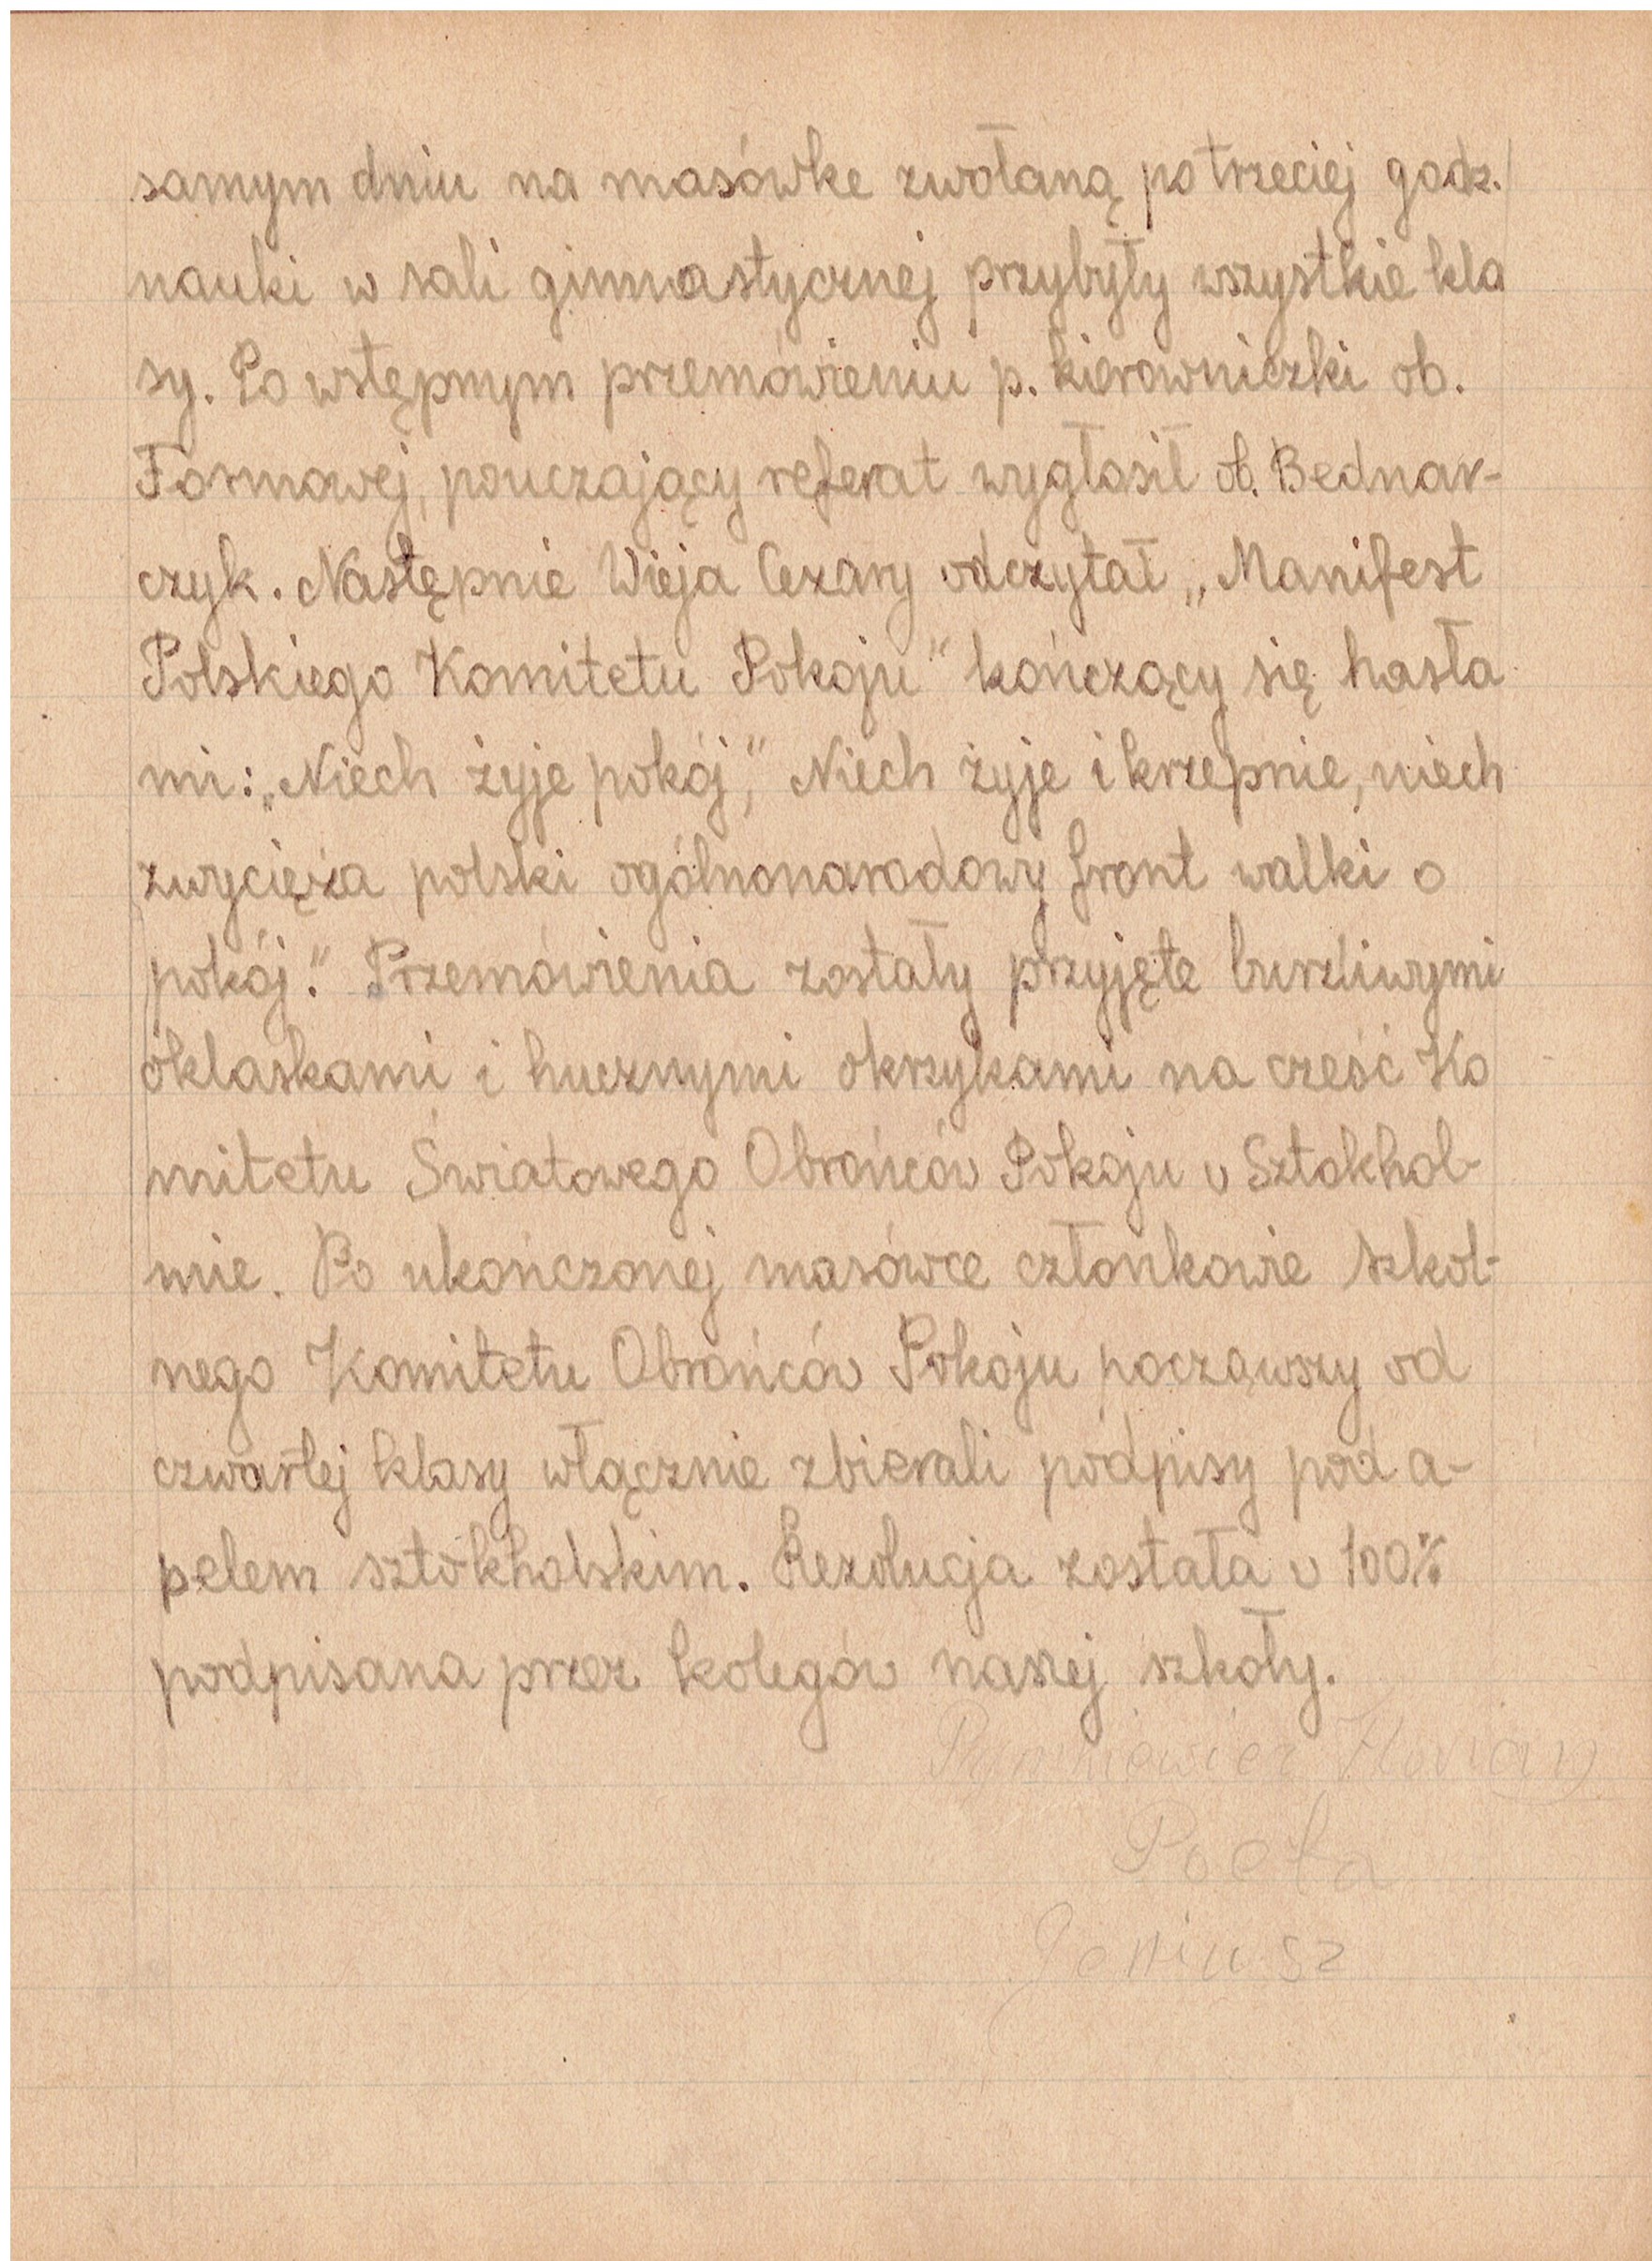 samym dniu na masówke zwołaną po trzeciej godz.
nauki w sali gimnastycznej przybyły wszystkie kla
sy. Po wstępnym przemówieniu p. kierowniczki ob.
Formowej, pouczający referat wygłosił ob. Bednar-
czyk. Następnie Wieja Cezary odczytał „Manifest
Polskiego Komitetu Pokoju" kończący się hasła
mi: „Niech żyje pokój," Niech żyje i krzepnie, niech
zwycięża polski ogólnonarodowy front walki o
pokój." Przemówienia zostały przyjęte burzliwymi
oklaskami i hucznymi okrzykami na cześć Ko
mitetu Światowego Obrońców Pokoju w Sztokhol-
mie. Po ukończonej masówce członkowie szkol-
nego Komitetu Obrońców Pokoju począwszy od
czwartej klasy włącznie zbierali podpisy pod a-
pelem sztokholskim. Rezolucja została w 100%
podpisana przez kolegów naszej szkoły.
Florian
Poeta
Geniusz